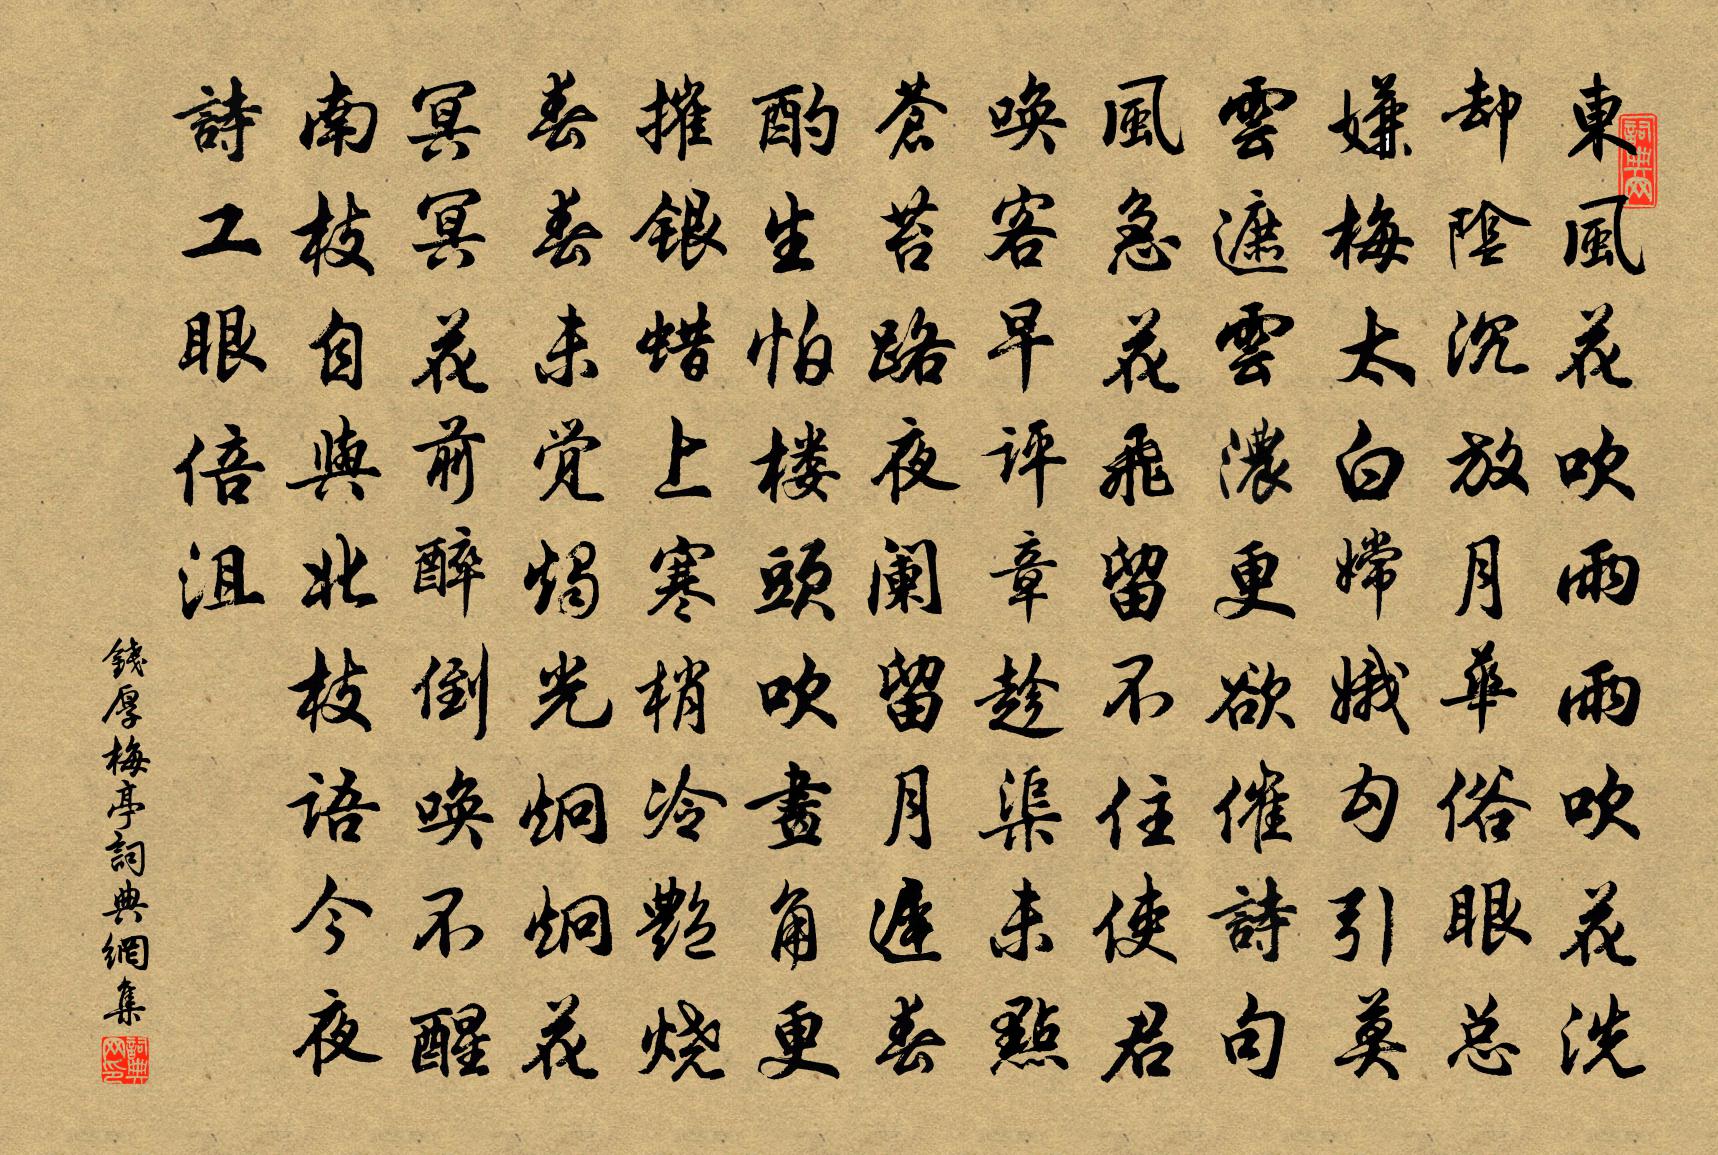 東風花吹雨雨吹花洗
却陰沉放月華俗眼总
嫌梅太白嫦娥勾引莫
雲遮雲濃更欲催詩句
風急花飛留不住使君
喚客早评章趁渠未點
蒼苔路夜阑留月遲春
酌生怕楼頭吹畫角更
摧銀蜡上寒梢冷艶烧
春春未觉燭光炯炯花
冥冥花前醉倒喚不醒
南枝自與北枝语今夜
詩工眼倍沮
錢厚梅亭詞典網集
詞典网
詞典网印